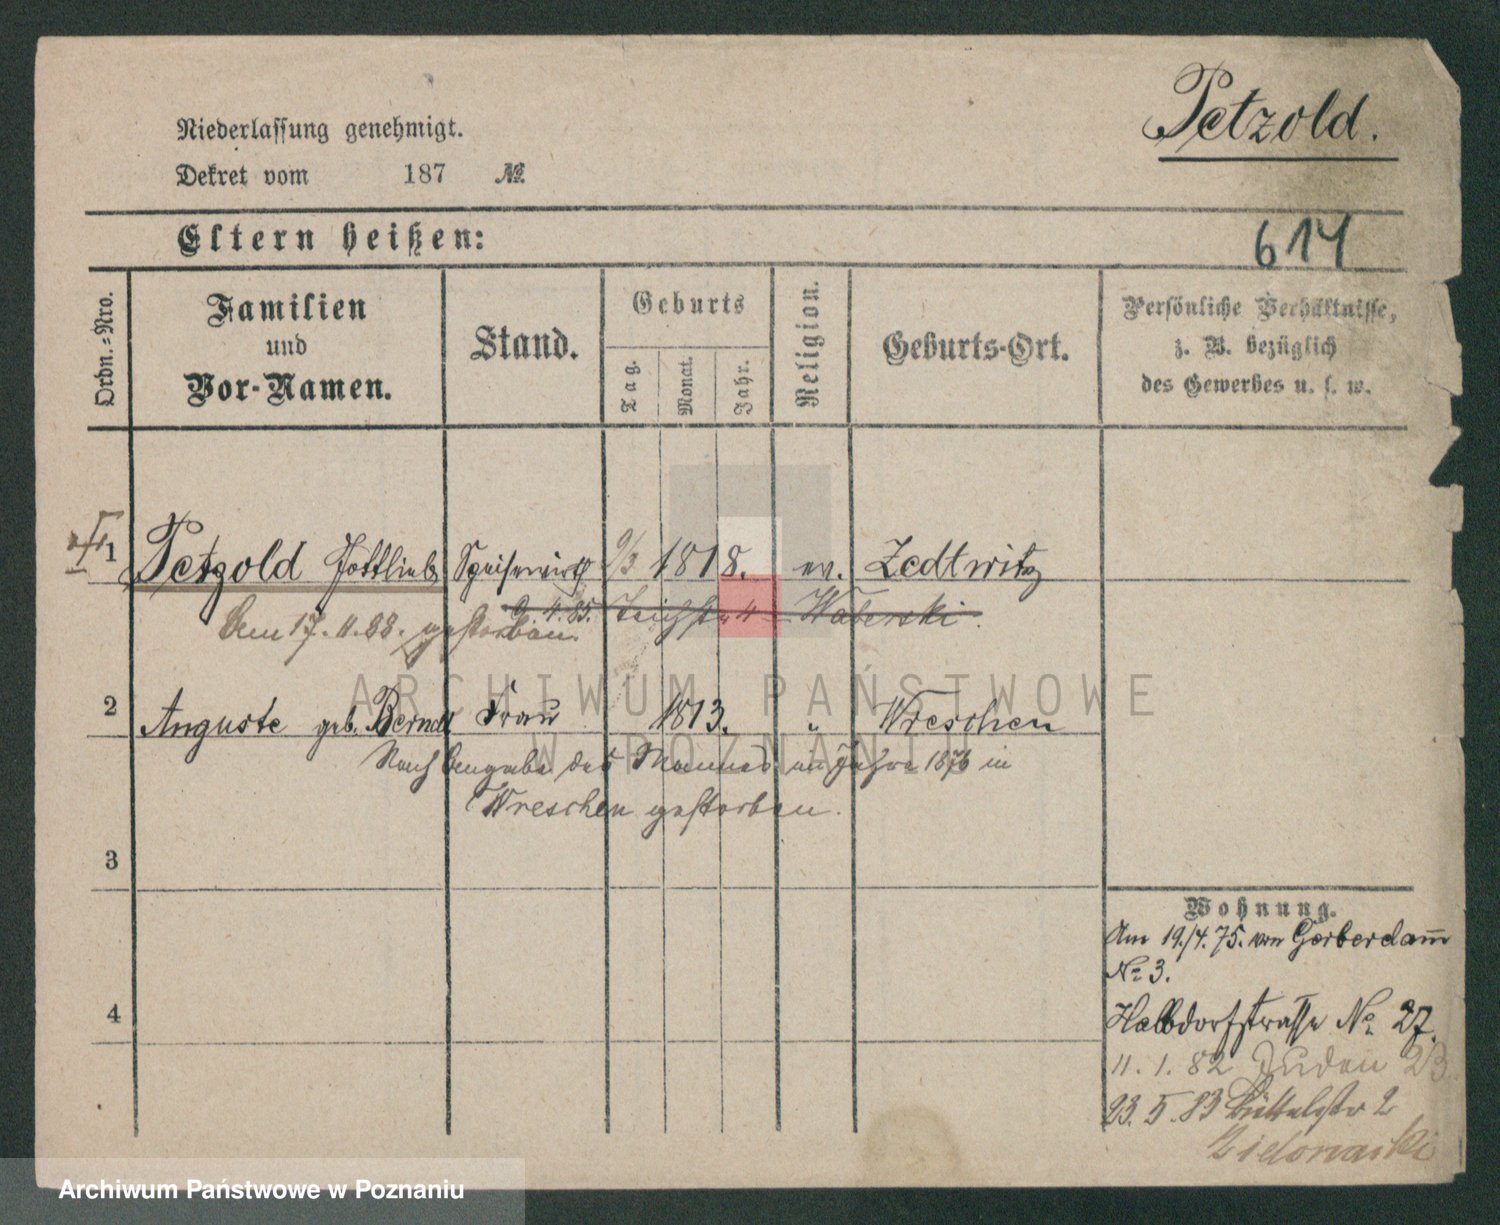 Petzold.
Niederlassung genehmigt.
Dekret vom 187 №
Eltern heißen:
614
Ordn.-Nro.
Familien und Vor-Namen.
Stand.
Geburts
Tag. Monat. Jahr.
Religion.
Geburts-Ort.
Persönliche Verhältnisse,
z. B. bezüglich
des Gewerbes u. s. w.
1 Petzold Gottlieb Speisewirth 9/3 1818. ev. Zedtwitz
9. 4. 85. Teichstr 4 Waberski.
Den 17. 11. 88. gestorben.
2 Auguste geb. Berndt Frau 1813. " Wreschen
Nach Angabe des Mannes im Jahre 1876 in
Wreschen gestorben.
3
4
Wohnung.
Am 19./4. 75. von Gerberdam̅
No 3.
Halbdorfstrasse No 27.
11. 1. 82 Juden 23.
23. 5. 83 Büttelstr 2
ARCHIWUM PAŃSTWOWE
W POZNANIU
Archiwum Państwowe w Poznaniu